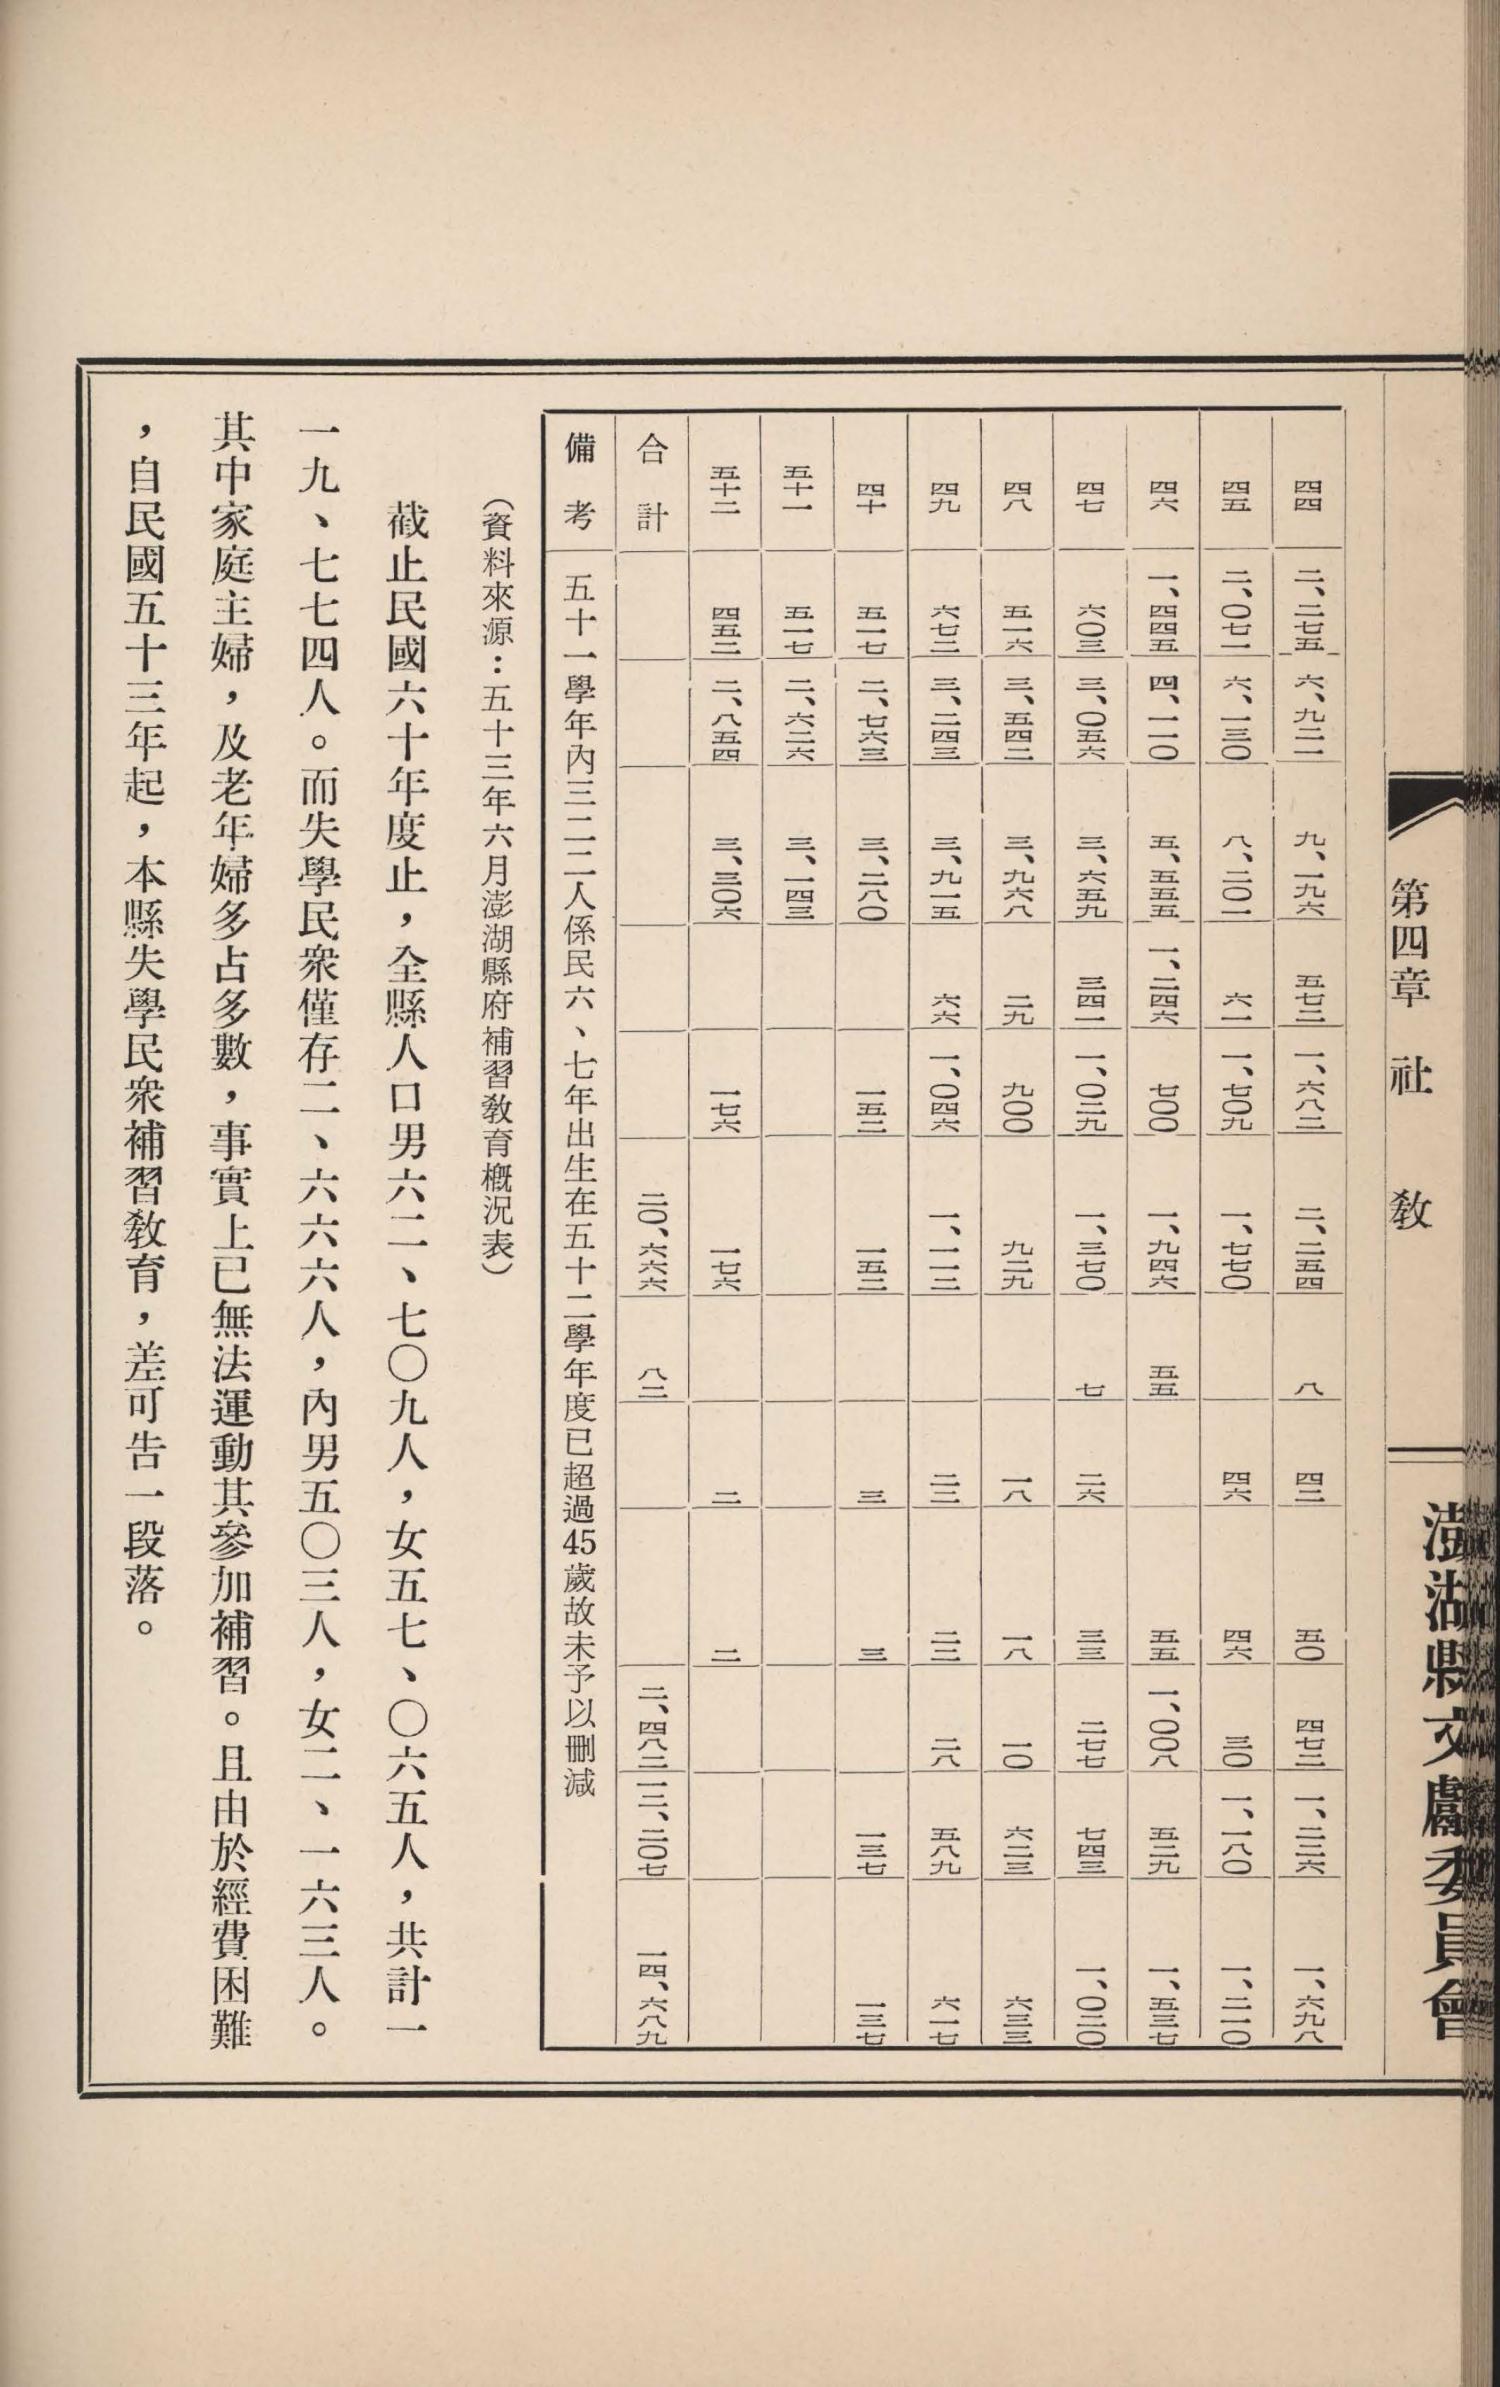 澎湖縣文獻委員會
第四章 社 教
四四 二、二七五 六、九二一 九、一九六 五七二 一、六八二 二、二五四 八 四二 五〇 四七二 一、二二六 一、六九八
四五 二、〇七一 六、一三〇 八、二〇一 六一 一、七〇九 一、七七〇 四六 四六 三〇 一、一八〇 一、二一〇
四六 一、四四五 四、一一〇 五、五五五 一、二四六 七〇〇 一、九四六 五五 五五 一、〇〇八 五二九 一、五三七
四七 六〇三 三、〇五六 三、六五九 三四一 一、〇二九 一、三七〇 七 二六 三三 二七七 七四三 一、〇二〇
四八 五一六 三、五四二 三、九六八 二九 九〇〇 九二九 一八 一八 一〇 六二三 六三三
四九 六七二 三、二四三 三、九一五 六六 一、〇四六 一、一一二 二二 二二 二八 五八九 六一七
四十 五一七 二、七六三 三、二八〇 一五二 一五二 三 三 一三七 一三七
五十一 五一七 二、六二六 三、一四三
五十二 四五二 二、八五四 三、三〇六 一七六 一七六 二 二
合計 二〇、六六六 八二 二、四八二 一二、二〇七 一四、六八九
備考 五十一學年內三二二人係民六、七年出生在五十二學年度已超過45歲故未予以刪減
（資料來源：五十三年六月澎湖縣府補習教育概況表）
截止民國六十年度止，全縣人口男六二、七〇九人，女五七、〇六五人，共計一
一九、七七四人。而失學民衆僅存二、六六六人，內男五〇三人，女二、一六三人。
其中家庭主婦，及老年婦多占多數，事實上已無法運動其參加補習。且由於經費困難
，自民國五十三年起，本縣失學民衆補習教育，差可告一段落。